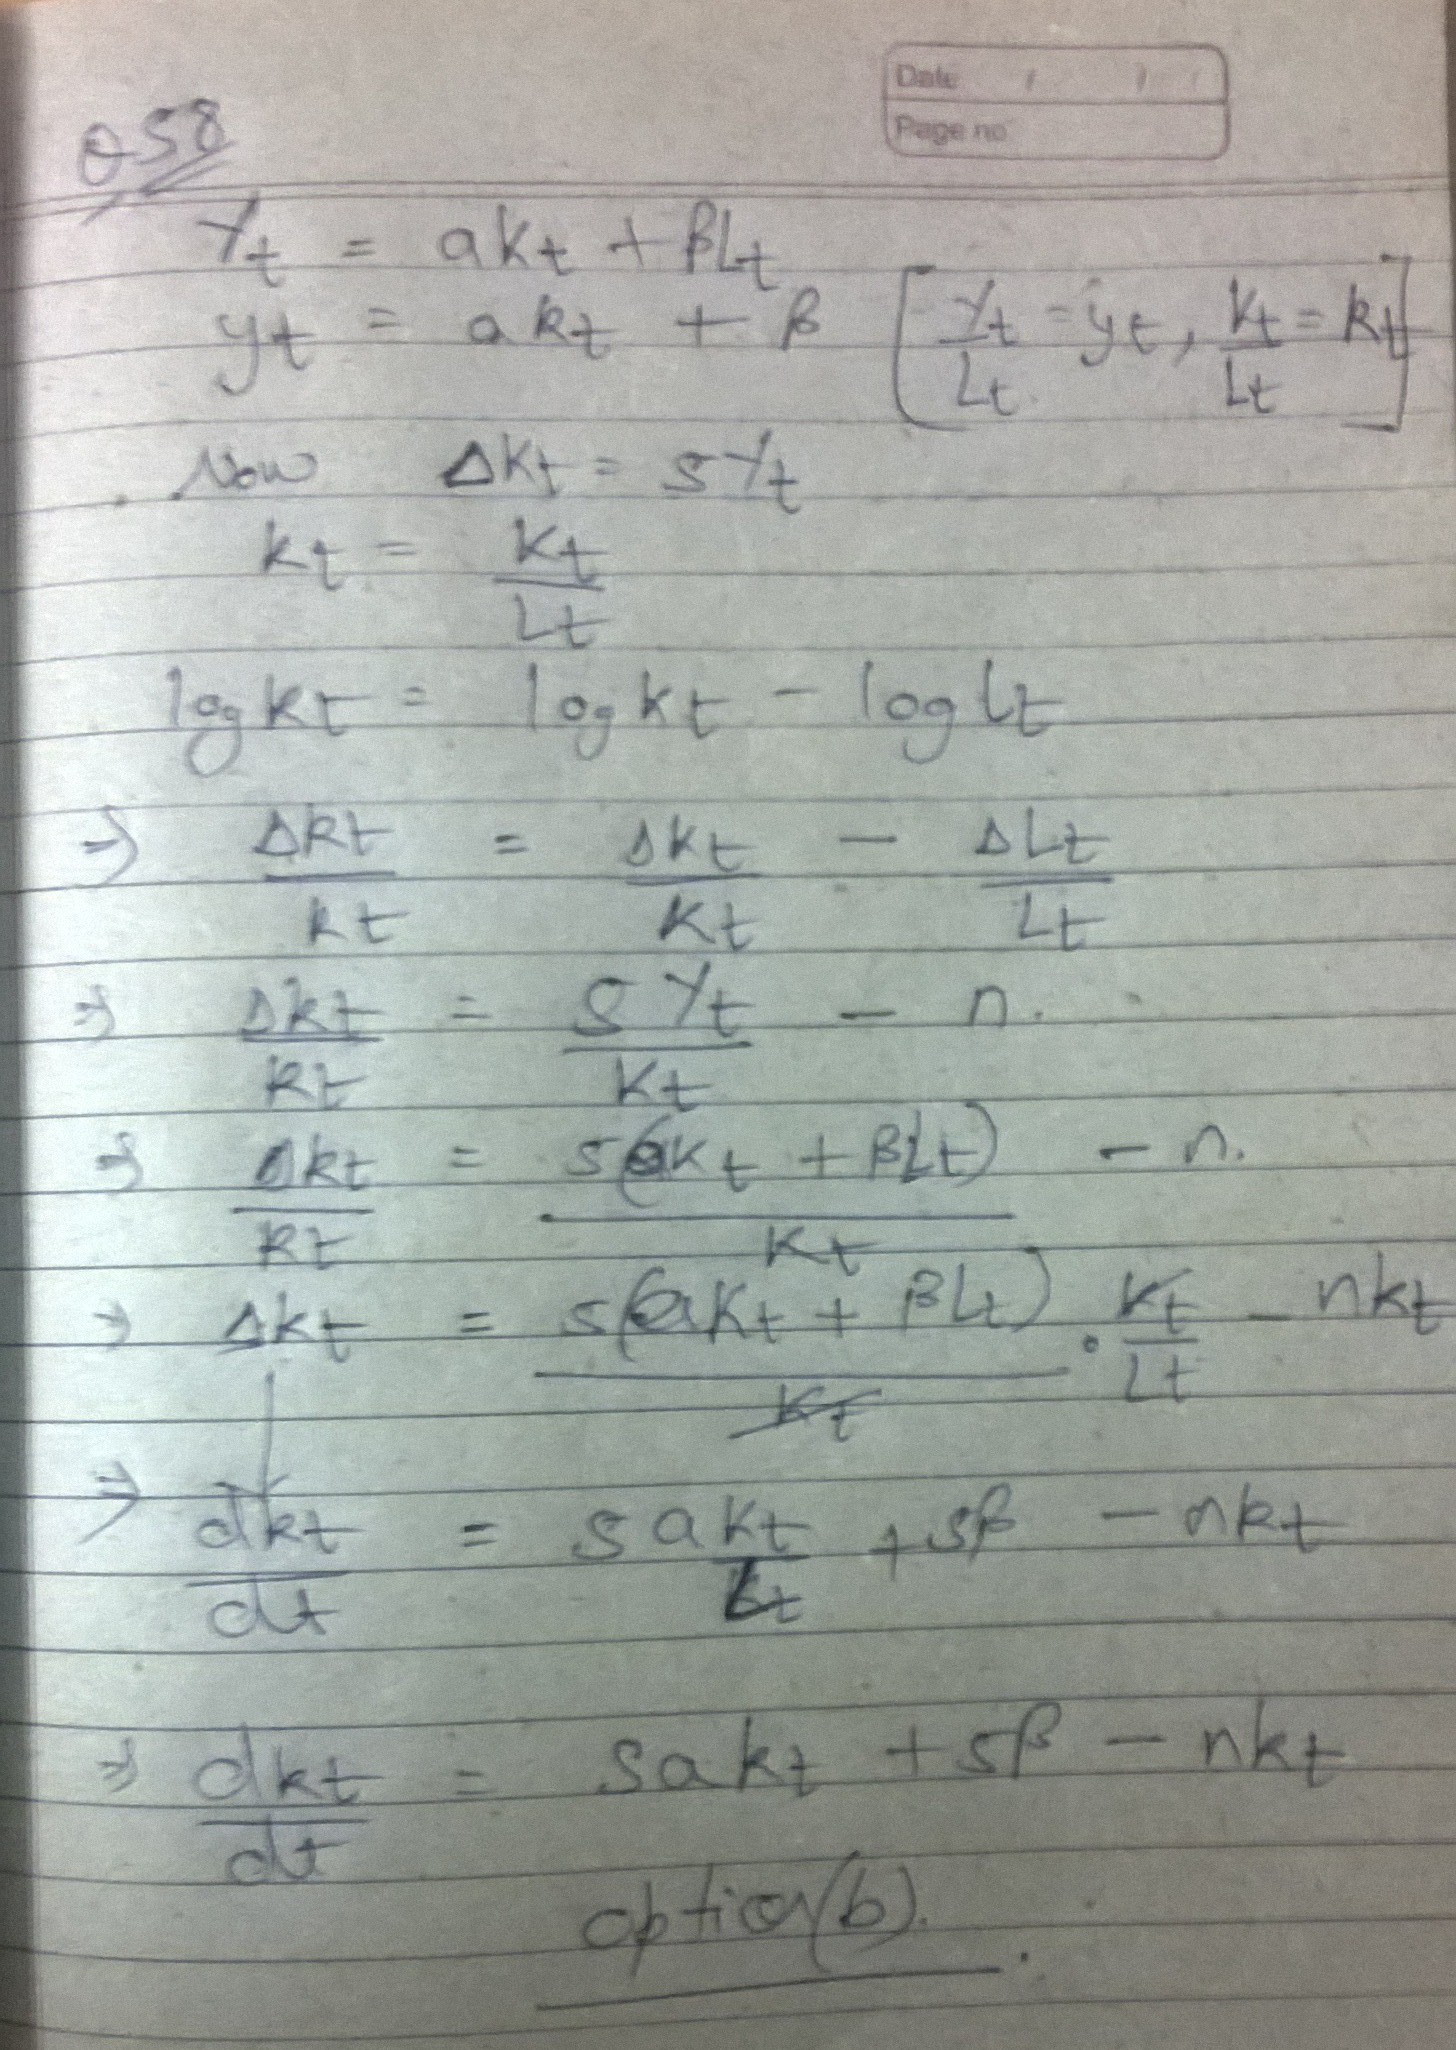 Date / /
Page no
Q58
Yt = aKt + βLt
yt = akt + β [Yt/Lt = yt, Kt/Lt = kt]
Now ΔKt = sYt
kt = Kt/Lt
log kt = log Kt - log Lt
⇒ Δkt/kt = ΔKt/Kt - ΔLt/Lt
⇒ Δkt/kt = sYt/Kt - n.
⇒ Δkt/kt = s(aKt + βLt)/Kt - n.
⇒ Δkt = s(aKt + βLt)/Kt · Kt/Lt - nkt
⇒ dkt/dt = saKt/Lt + sβ - nkt
⇒ dkt/dt = sakt + sβ - nkt
option(b).